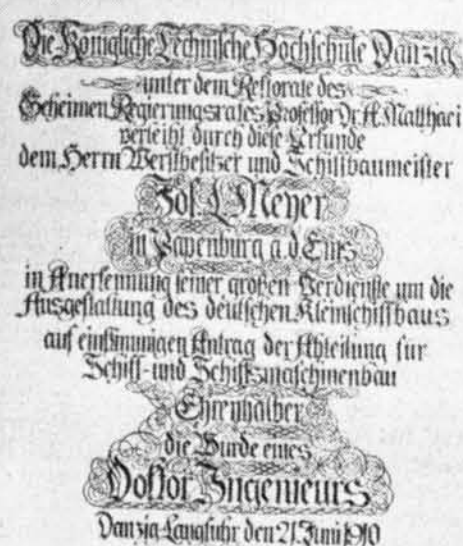 Die Königliche Technische Hochschule Danzig
unter dem Rektorate des
Geheimen Regierungsrates Professor Dr. A. Matthaei
verleiht durch diese Urkunde
dem Herrn Werftbesitzer und Schiffbaumeister
Jos. L. Meyer
in Papenburg a. d. Ems
in Anerkennung seiner großen Verdienste um die
Ausgestaltung des deutschen Kleinschiffbaus
auf einstimmigen Antrag der Abteilung für
Schiff- und Schiffsmaschinenbau
Ehrenhalber
die Würde eines
Doktor-Ingenieurs
Danzig-Langfuhr den 21. Juni 1910